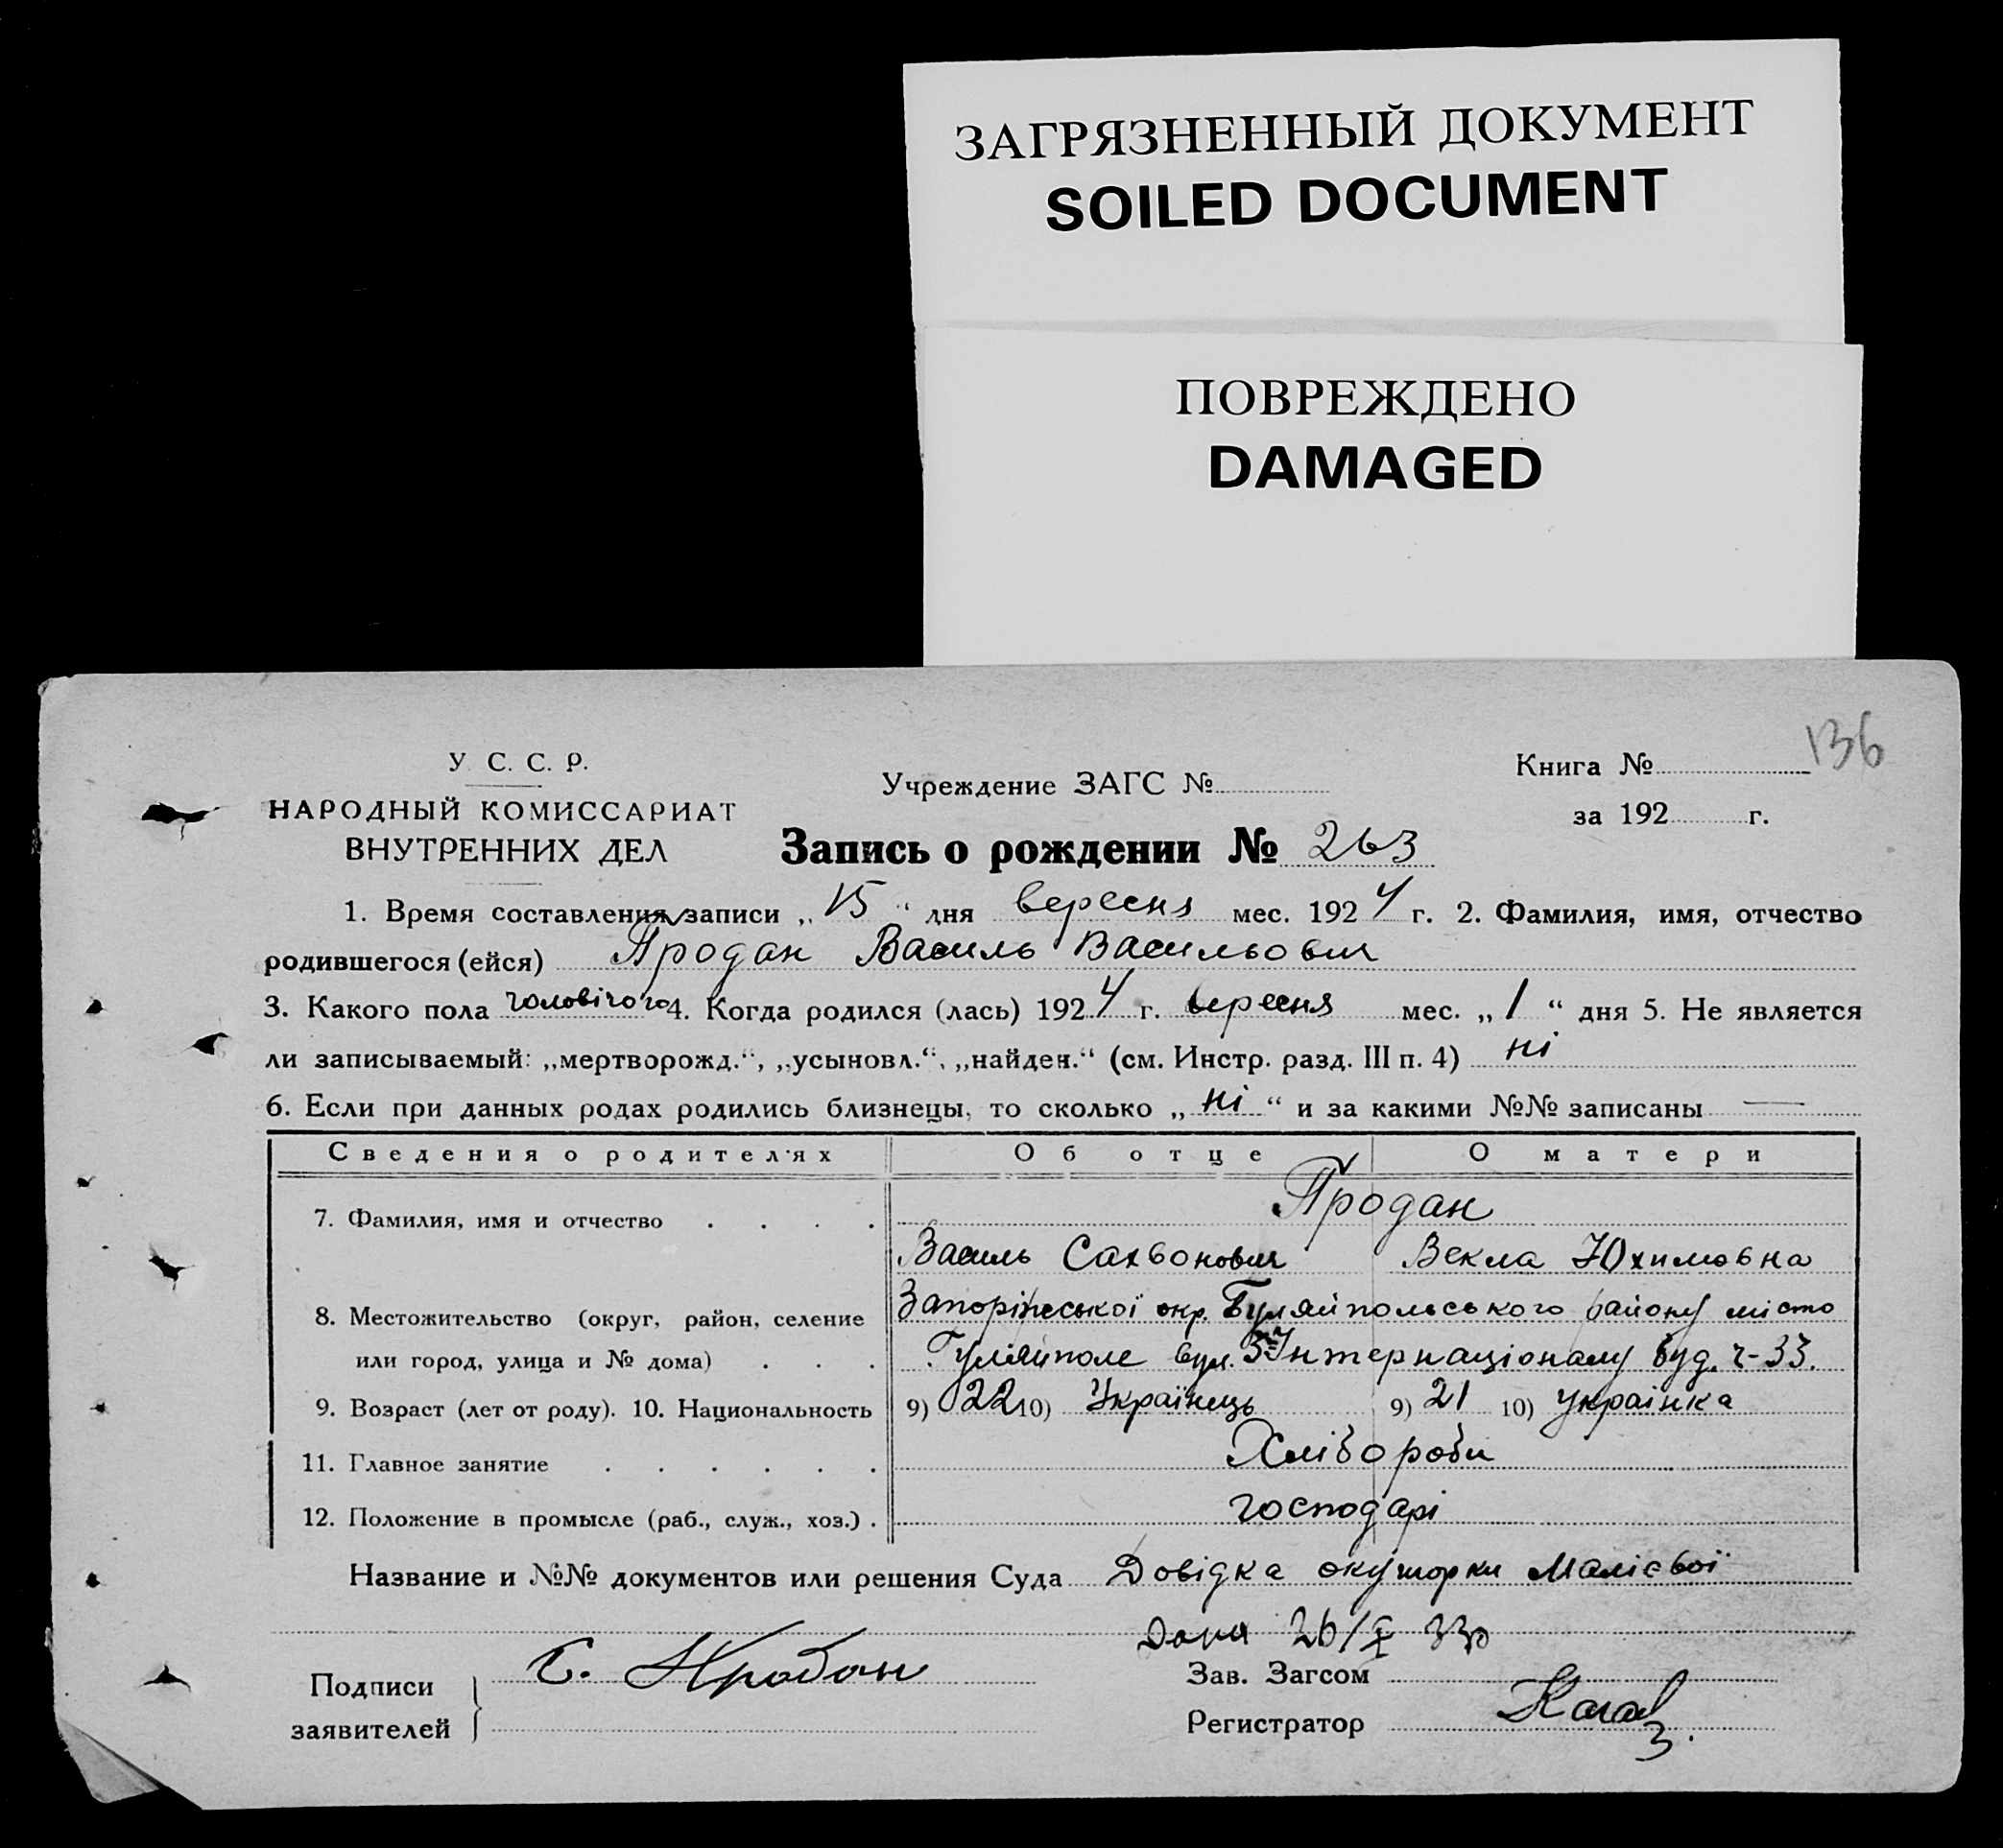 ЗАГРЯЗНЕННЫЙ ДОКУМЕНТ
SOILED DOCUMENT
ПОВРЕЖДЕНО
DAMAGED
136
У. С. С. Р.
НАРОДНЫЙ КОМИССАРИАТ
ВНУТРЕННИХ ДЕЛ
Учреждение ЗАГС №
Книга №
за 192 г.
Запись о рождении № 263
1. Время составления записи „15“ дня вересня мес. 1924 г. 2. Фамилия, имя, отчество
родившегося (ейся) Продан Василь Васильович
3. Какого пола чоловічого 4. Когда родился (лась) 1924 г. вересня мес. „1“ дня 5. Не является
ли записываемый: „мертворожд.“, „усыновл.“, „найден.“ (см. Инстр. разд. III п. 4) ні
6. Если при данных родах родились близнецы, то сколько „ні“ и за какими №№ записаны —
Сведения о родителях Об отце О матери
7. Фамилия, имя и отчество . . . . Продан
Василь Сахвонович Векла Юхимовна
8. Местожительство (округ, район, селение Запоріжської окр. Гуляйпольського району місто
или город, улица и № дома) . . . Гуляйполе вул. 3 Інтернаціоналу буд. ч-33.
9. Возраст (лет от роду). 10. Национальность 9) 22 10) Українець 9) 21 10) українка
11. Главное занятие . . . . . . Хлібороби
12. Положение в промысле (раб., служ., хоз.) . господарі
Название и №№ документов или решения Суда Довідка окушорки Малієвої
26/X
Подписи
заявителей
С. Продан
Зав. Загсом
Регистратор